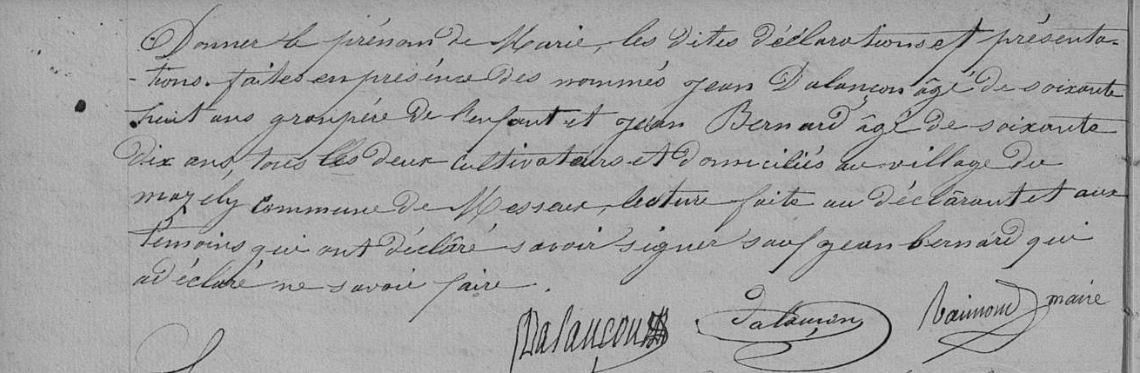 Donner le prénom de Marie, les dites déclarations et présenta-
-tions. faites en présence des nommés jean Dalançon âgé de soixante
huit ans granpére de l'enfant et jean Bernard âgé de soixante
dix ans, tous les deux cultivateurs et domiciliés au village du
mazely commune de Messeux, lecture faite au déclârant et aux
témoins qui ont déclâré savoir signer sauf jean bernard qui
a déclaré ne savoir faire.
Dalançon Dalançon Raimond maire